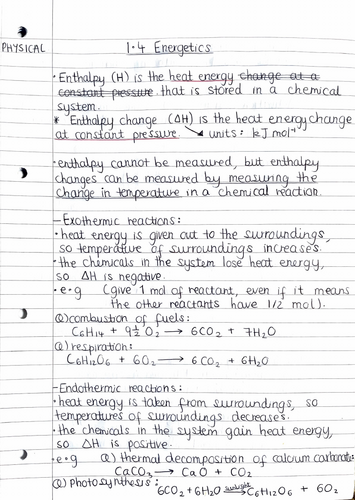 PHYSICAL
1.4 Energetics
· Enthalpy (H) is the heat energy change at a
constant pressure that is stored in a chemical
system.
* Enthalpy change (ΔH) is the heat energy change
at constant pressure. ↘ units: kJ mol⁻¹
· enthalpy cannot be measured, but enthalpy
changes can be measured by measuring the
change in temperature in a chemical reaction.
– Exothermic reactions:
· heat energy is given out to the surroundings,
so temperature of surroundings increases.
· the chemicals in the system lose heat energy,
so ΔH is negative.
· e.g (give 1 mol of reactant, even if it means
the other reactants have 1/2 mol).
a) combustion of fuels:
C₆H₁₄ + 9½ O₂ → 6CO₂ + 7H₂O
a) respiration:
C₆H₁₂O₆ + 6O₂ → 6CO₂ + 6H₂O
– Endothermic reactions:
· heat energy is taken from surroundings, so
temperatures of surroundings decreases.
· the chemicals in the system gain heat energy,
so ΔH is positive.
· e.g a) thermal decomposition of calcium carbonate:
CaCO₃ → CaO + CO₂
a) Photosynthesis:
6CO₂ + 6H₂O sunlight→ C₆H₁₂O₆ + 6O₂